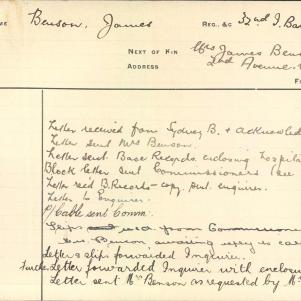 Benson, James
REG. & C 32nd I. Bat
NEXT OF KIN Mrs James Benson
ADDRESS 2nd Avenue.
Letter received from Sydney B. & acknowled
Letter sent Mrs Benson.
Letter sent Base Records enclosing
Block letter sent Commissioners (see
Letter rec'd B. Records - copy sent enquirer.
Letter to Enquirer.
P/Cable sent Comm.
Slips
Mrs Benson, awaiting reply to
Letter & slip forwarded Inquirer.
Further Letter forwarded Inquirer with enclosu
Letter sent Mrs Benson as requested by M